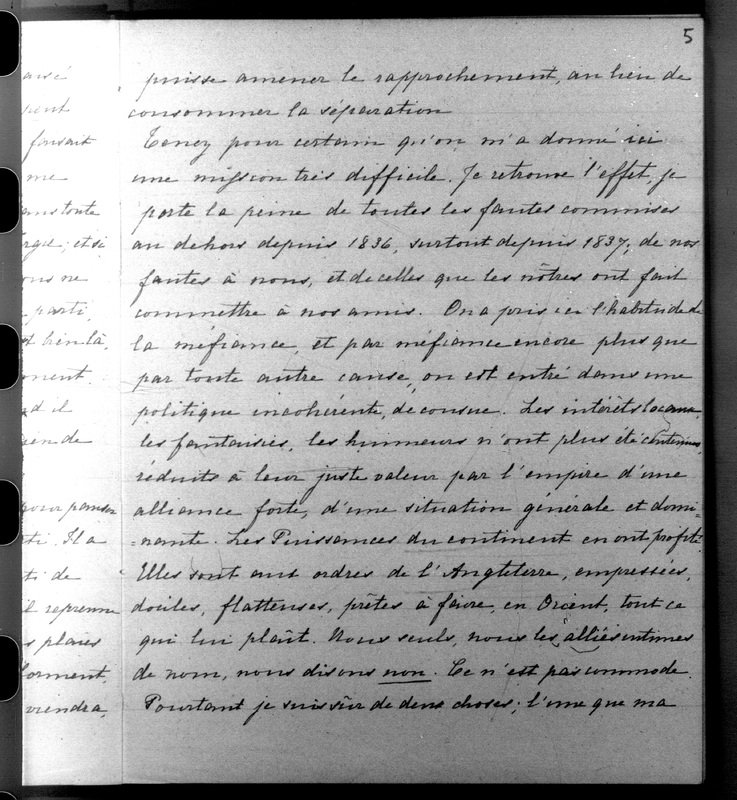 5
puisse amener le rapprochement, au lieu de
consommer la séparation
Tenez pour certain qu'on m'a donné ici
une mission très difficile. Je retrouve l'effet, je
porte la peine de toutes les fautes commises
au dehors depuis 1836, surtout depuis 1837; de nos
fautes à nous, et de celles que les nôtres ont fait
commettre à nos amis. On a pris ici l'habitude de
la méfiance, et par méfiance encore plus que
par toute autre cause, on est entré dans une
politique incohérente, décousue. Les intérêts locaux,
les fantaisies, les humeurs n'ont plus été contenus,
réduits à leur juste valeur par l'empire d'une
alliance forte, d'une situation générale et domi=
=nante. Les Puissances du continent en ont profité.
Elles sont aux ordres de l'Angleterre, empressées,
dociles, flatteuses, prêtes à faire, en Orient, tout ce
qui lui plaît. Nous seuls, nous les alliés intimes
de nom, nous disons non. Ce n'est pas commode.
Pourtant je suis sûr de deux choses; l'une que ma
aisé
faisait
me
ans toute
et si
ne
parti,
bien là,
d il
de
pour panser
ti. Il a
ti de
il reprenne
s plaies
forment,
viendra,